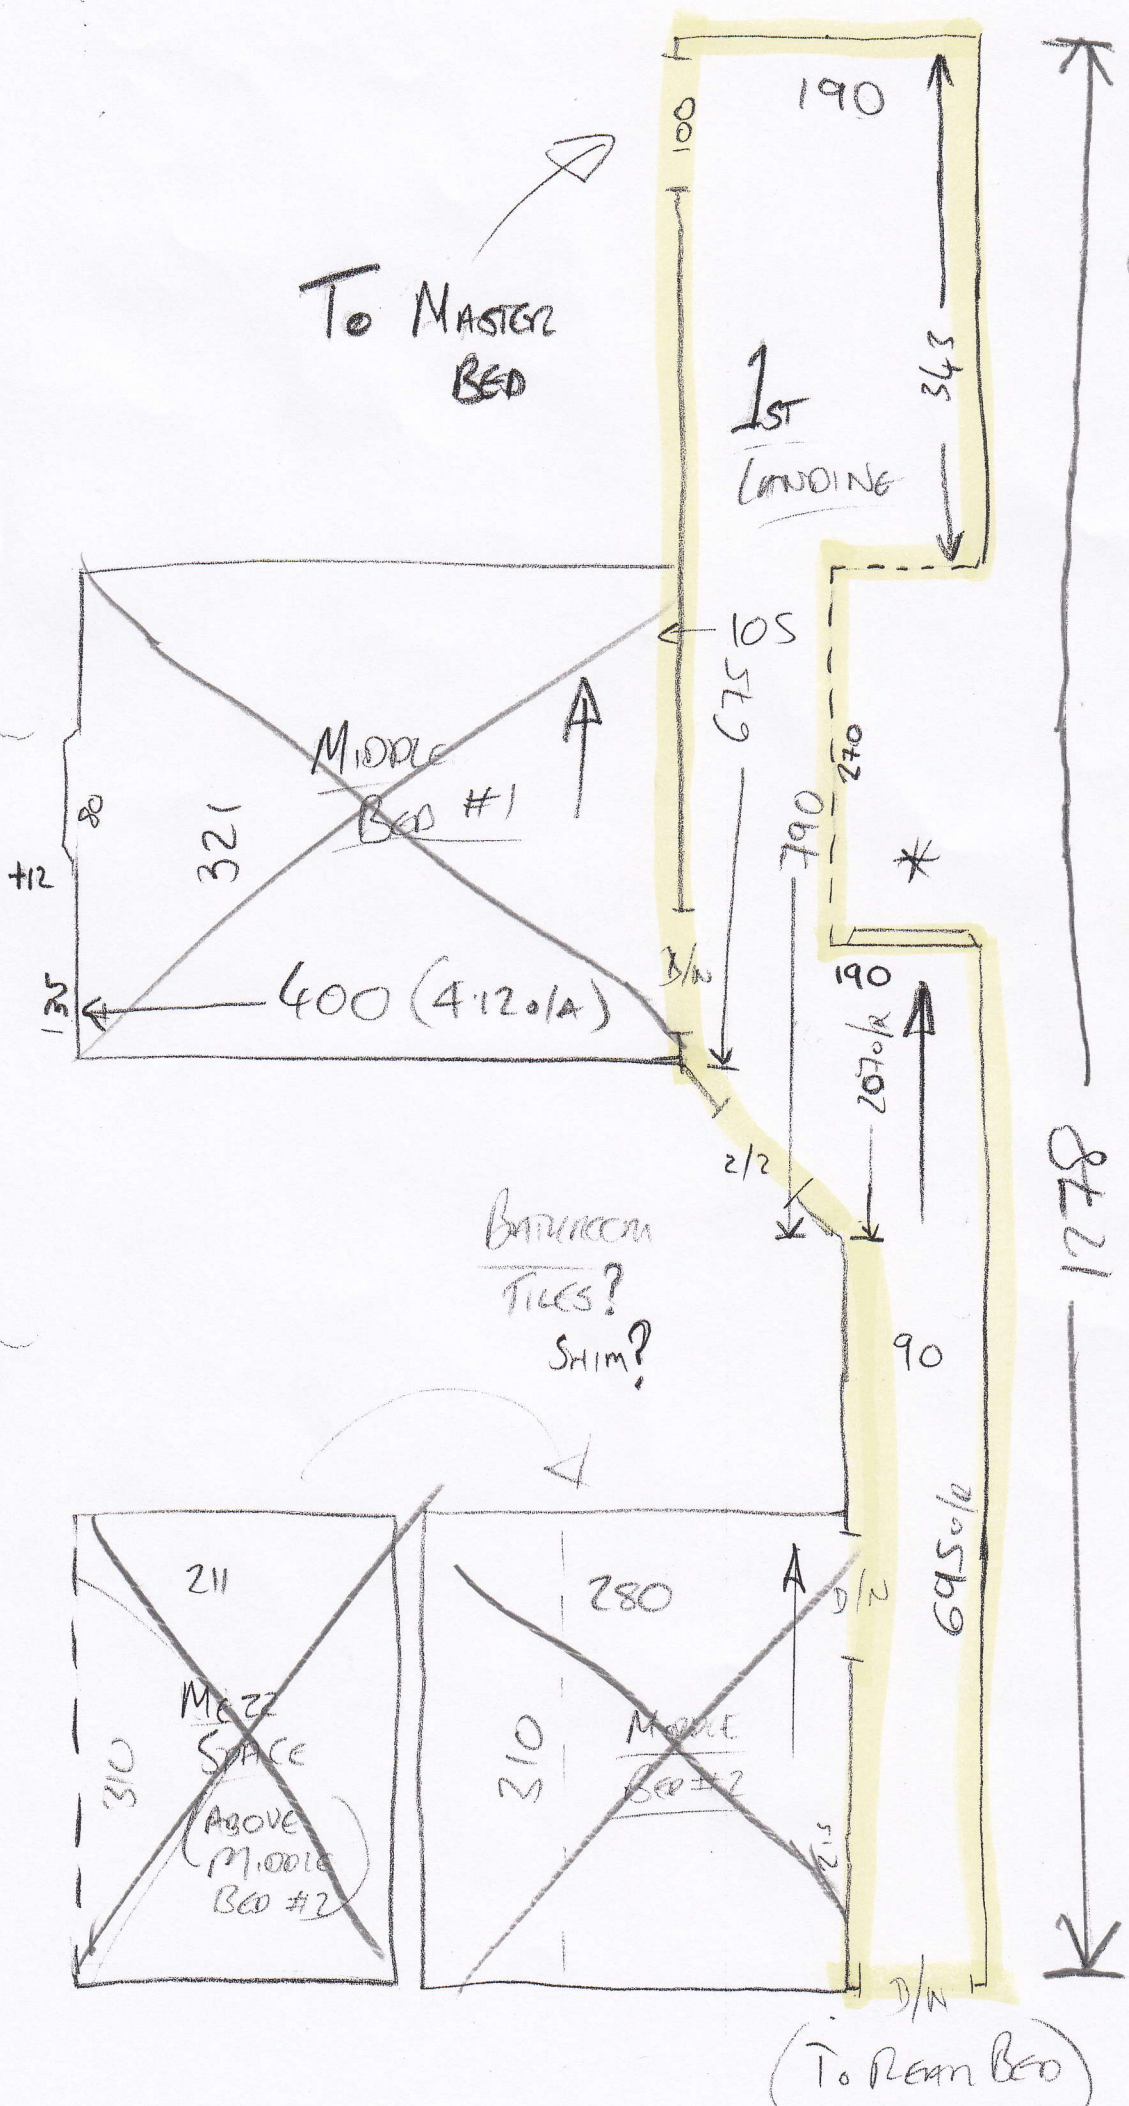 190
100
To MASTER
BED
343
1ST
LANDING
105
675
MIDDLE
BED #1
321
80
+12
135
400 (412 o/A)
D/N
790
270
*
190
207 o/R
2/2
1278
BATHROOM
TILES?
SHIM?
90
695 o/R
211
280
D/N
MEZZ
SPACE
(ABOVE
MIDDLE
BED #2)
310
310
MIDDLE
BED #2
D/N
(To REAR BED)